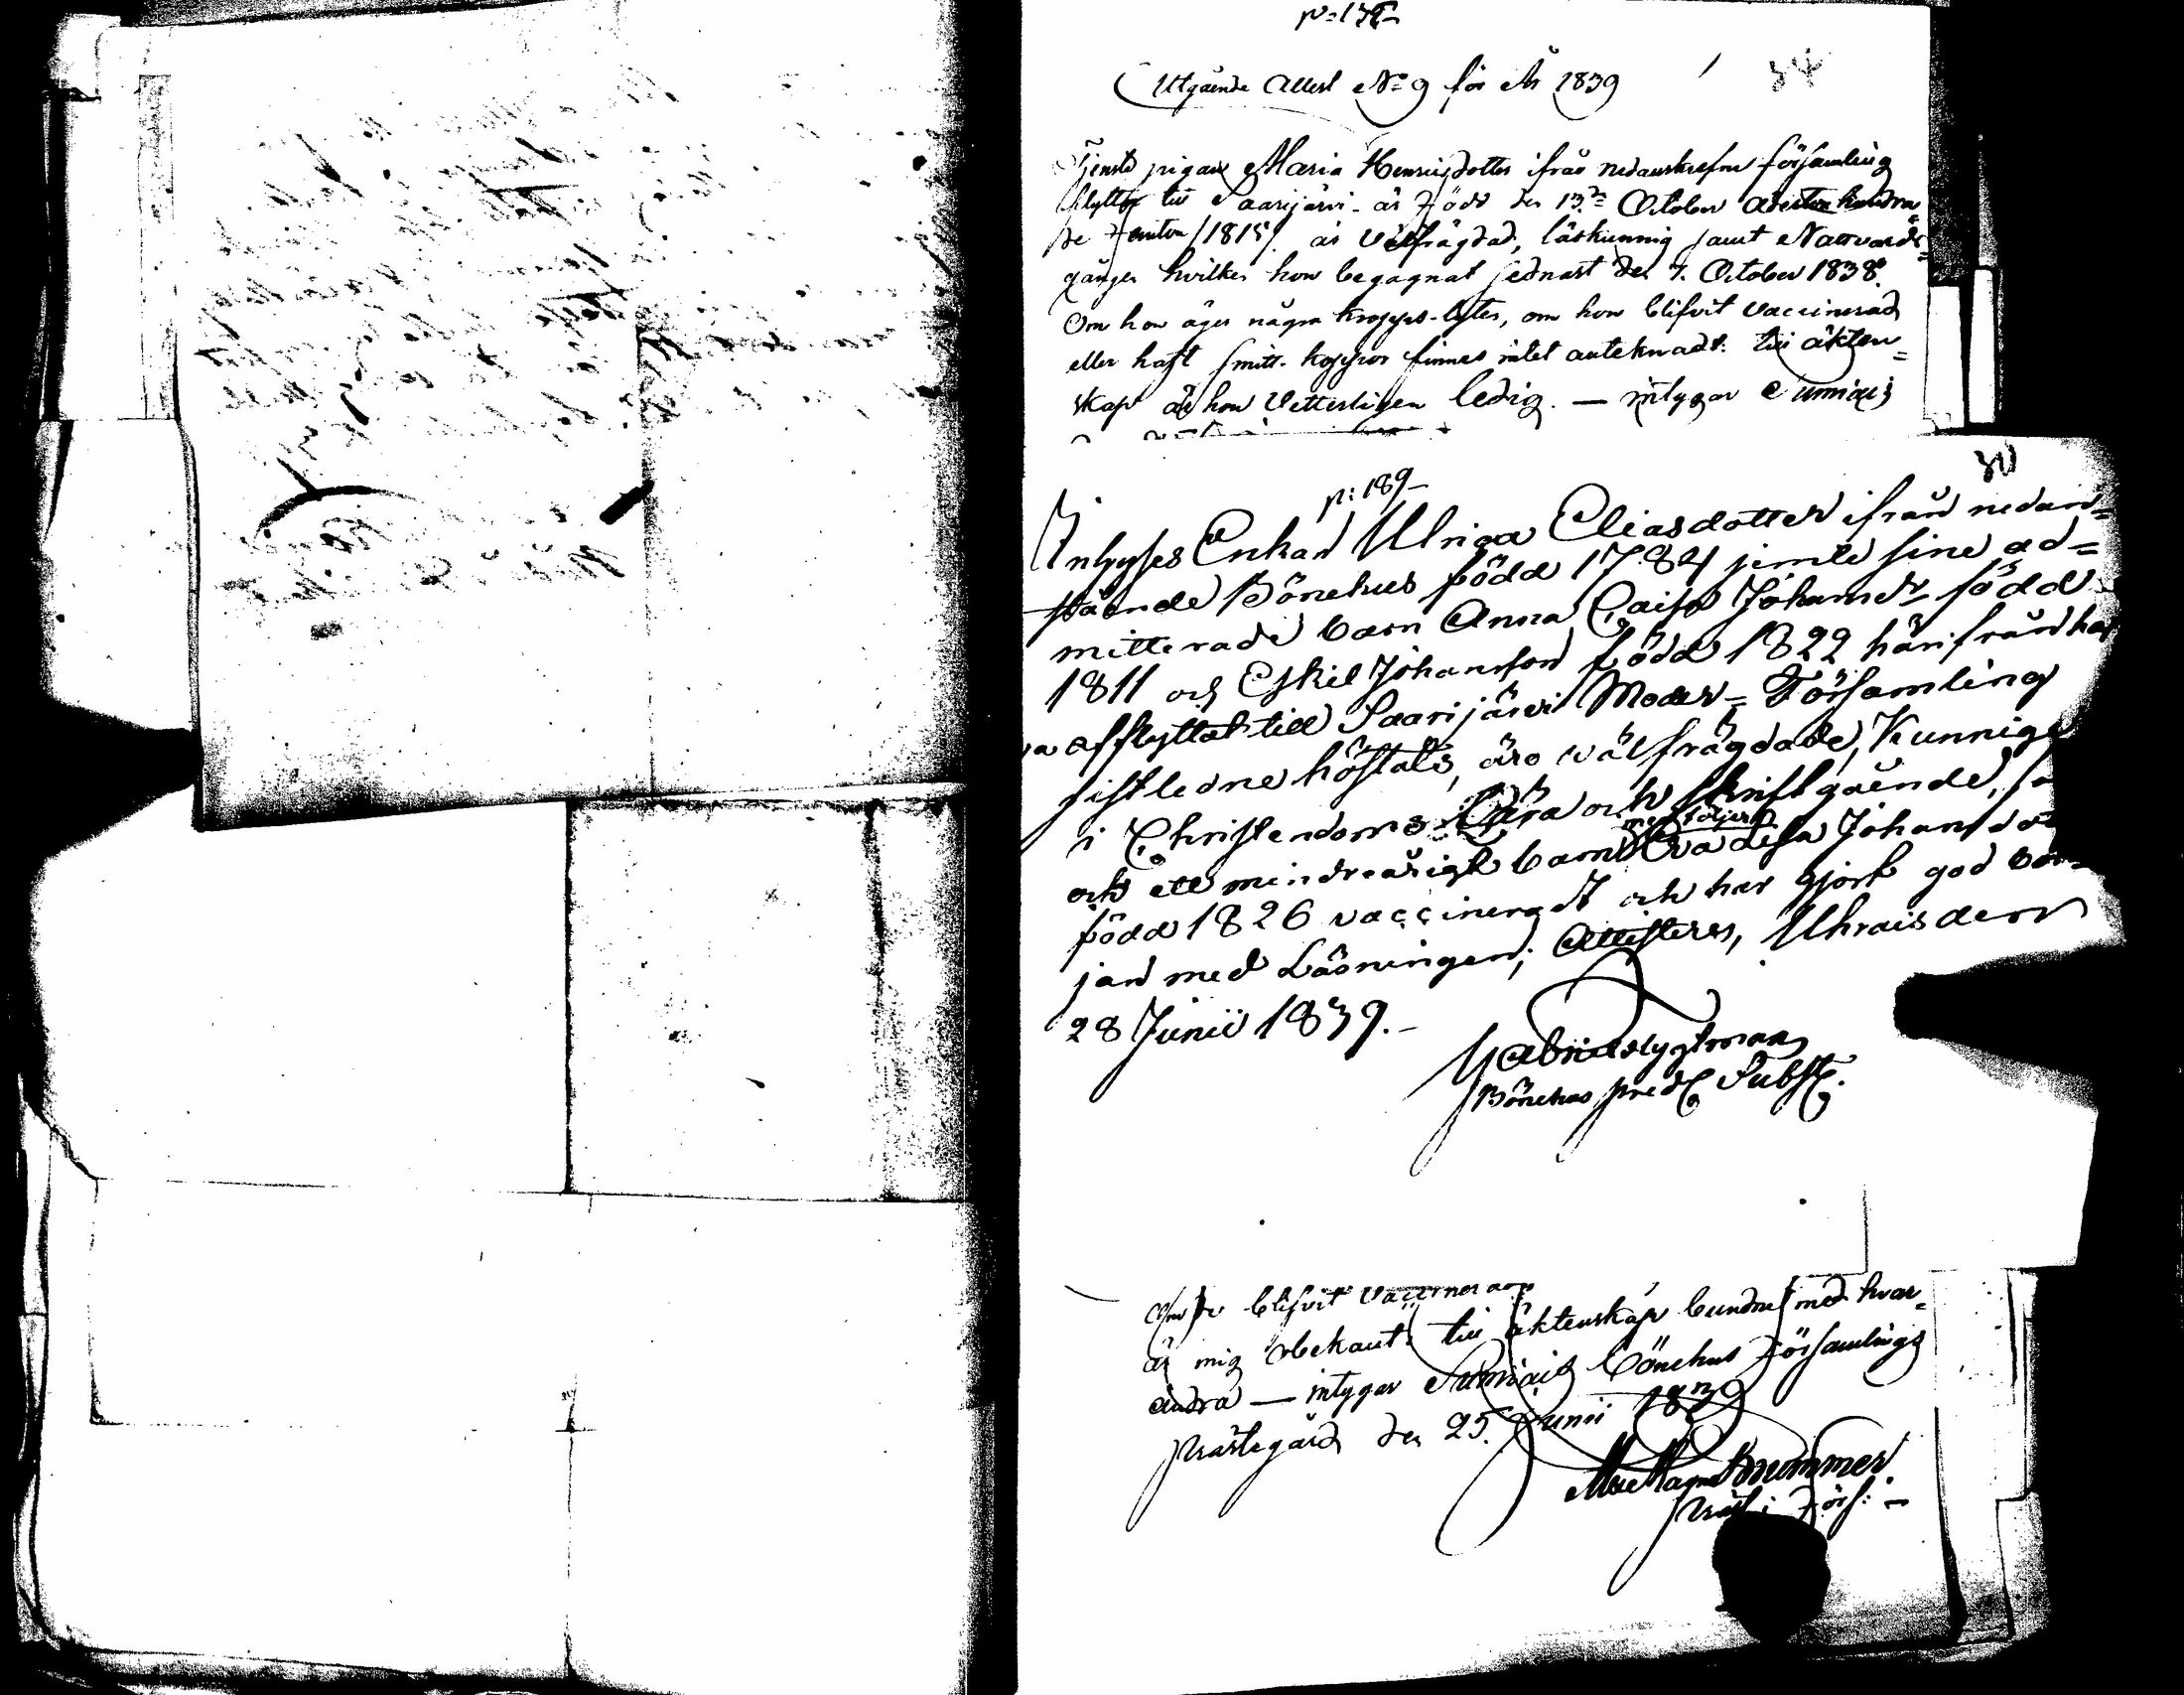 p: 134
Utgående Attest No 9 för År 1839
34
Tjenste pigan Maria Henricsdotter ifrån nedanskrefne församling
flyttar till Saarijärvi - är Född den 13de October adertonhundra-
de Femton /1815/. är välfrägdad, läskunnig samt Nattvards-
gånger hvilken hon begagnat sednast den 7. October 1838.
Om hon äger några kropps-lyten, om hon blifvit vaccinerad
eller haft smitt-koppor finnes intet antecknadt. till äkten-
skap är hon Vetterligen ledig. — intygar Sumiais
30
p: 189
Inhyses Enkan Ulrica Eliasdotter ifrån nedan-
stående Bönehus född 1784 jemte sine ad-
mitterade barn Anna Caisa Johansdr född
1811 och Eskil Johansson född 1822 härifrån haf
va afflyttat till Saarijärvi Moder-Församling
sistledne höst, äro välfrägdade, Kunnige
i Christendoms Lära och skriftgående, så
medföljer
och ett mindreårigt barn Eva Lisa Johansdot
född 1826 vaccineradt och har gjort god bör-
jan med Läsningen; Attesteres, Uhrais den
28 Junii 1839.-
Gabriel Lygtman
Bönehus pred. Subst.
Om de blifvit vaccinerade
är mig obekant. till äktenskap bundne med hvar-
andra — intygar Sumiais Bönehus Församlings
Prästegård den 25. Junii 1839
Brummer.